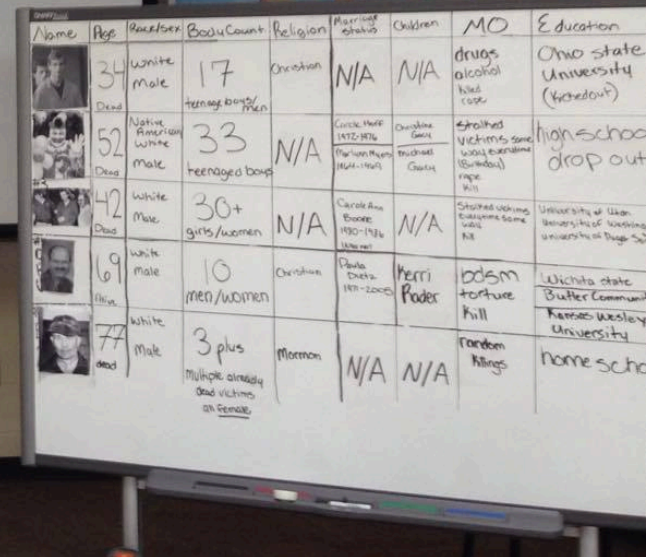 Name Age Race/sex Body Count Religion Marriage status Children MO Education
34
Dead
White
Male
17
teenage boys/men
Christian
N/A
N/A
drugs
alcohol
killed
rape
Ohio state
University
(Kicked out)
52
Dead
Native
American
White
Male
33
teenaged boys
N/A
1972-1976
Marlynn Myers
1964-1969
Christine
Gacy
Michael
Gacy
Stalked
victims same
way everytime
(Birthday)
rape
kill
high schoo
drop out
42
Dead
White
Male
30+
girls/women
N/A
Carole Ann
Boone
1980-1986
N/A
Stalked victims
everytime same
way
Kill
University of Utah
University of
University of
69
Alive
White
male
10
men/women
Christian
Paula
Dietz
1971-2005
Kerri
Rader
bdsm
torture
Kill
Wichita state
Butler Communi
Kansas Wesley
University
77
dead
White
Male
3 plus
Multiple already
dead victims
all female
Mormon
N/A
N/A
random
killings
home scho